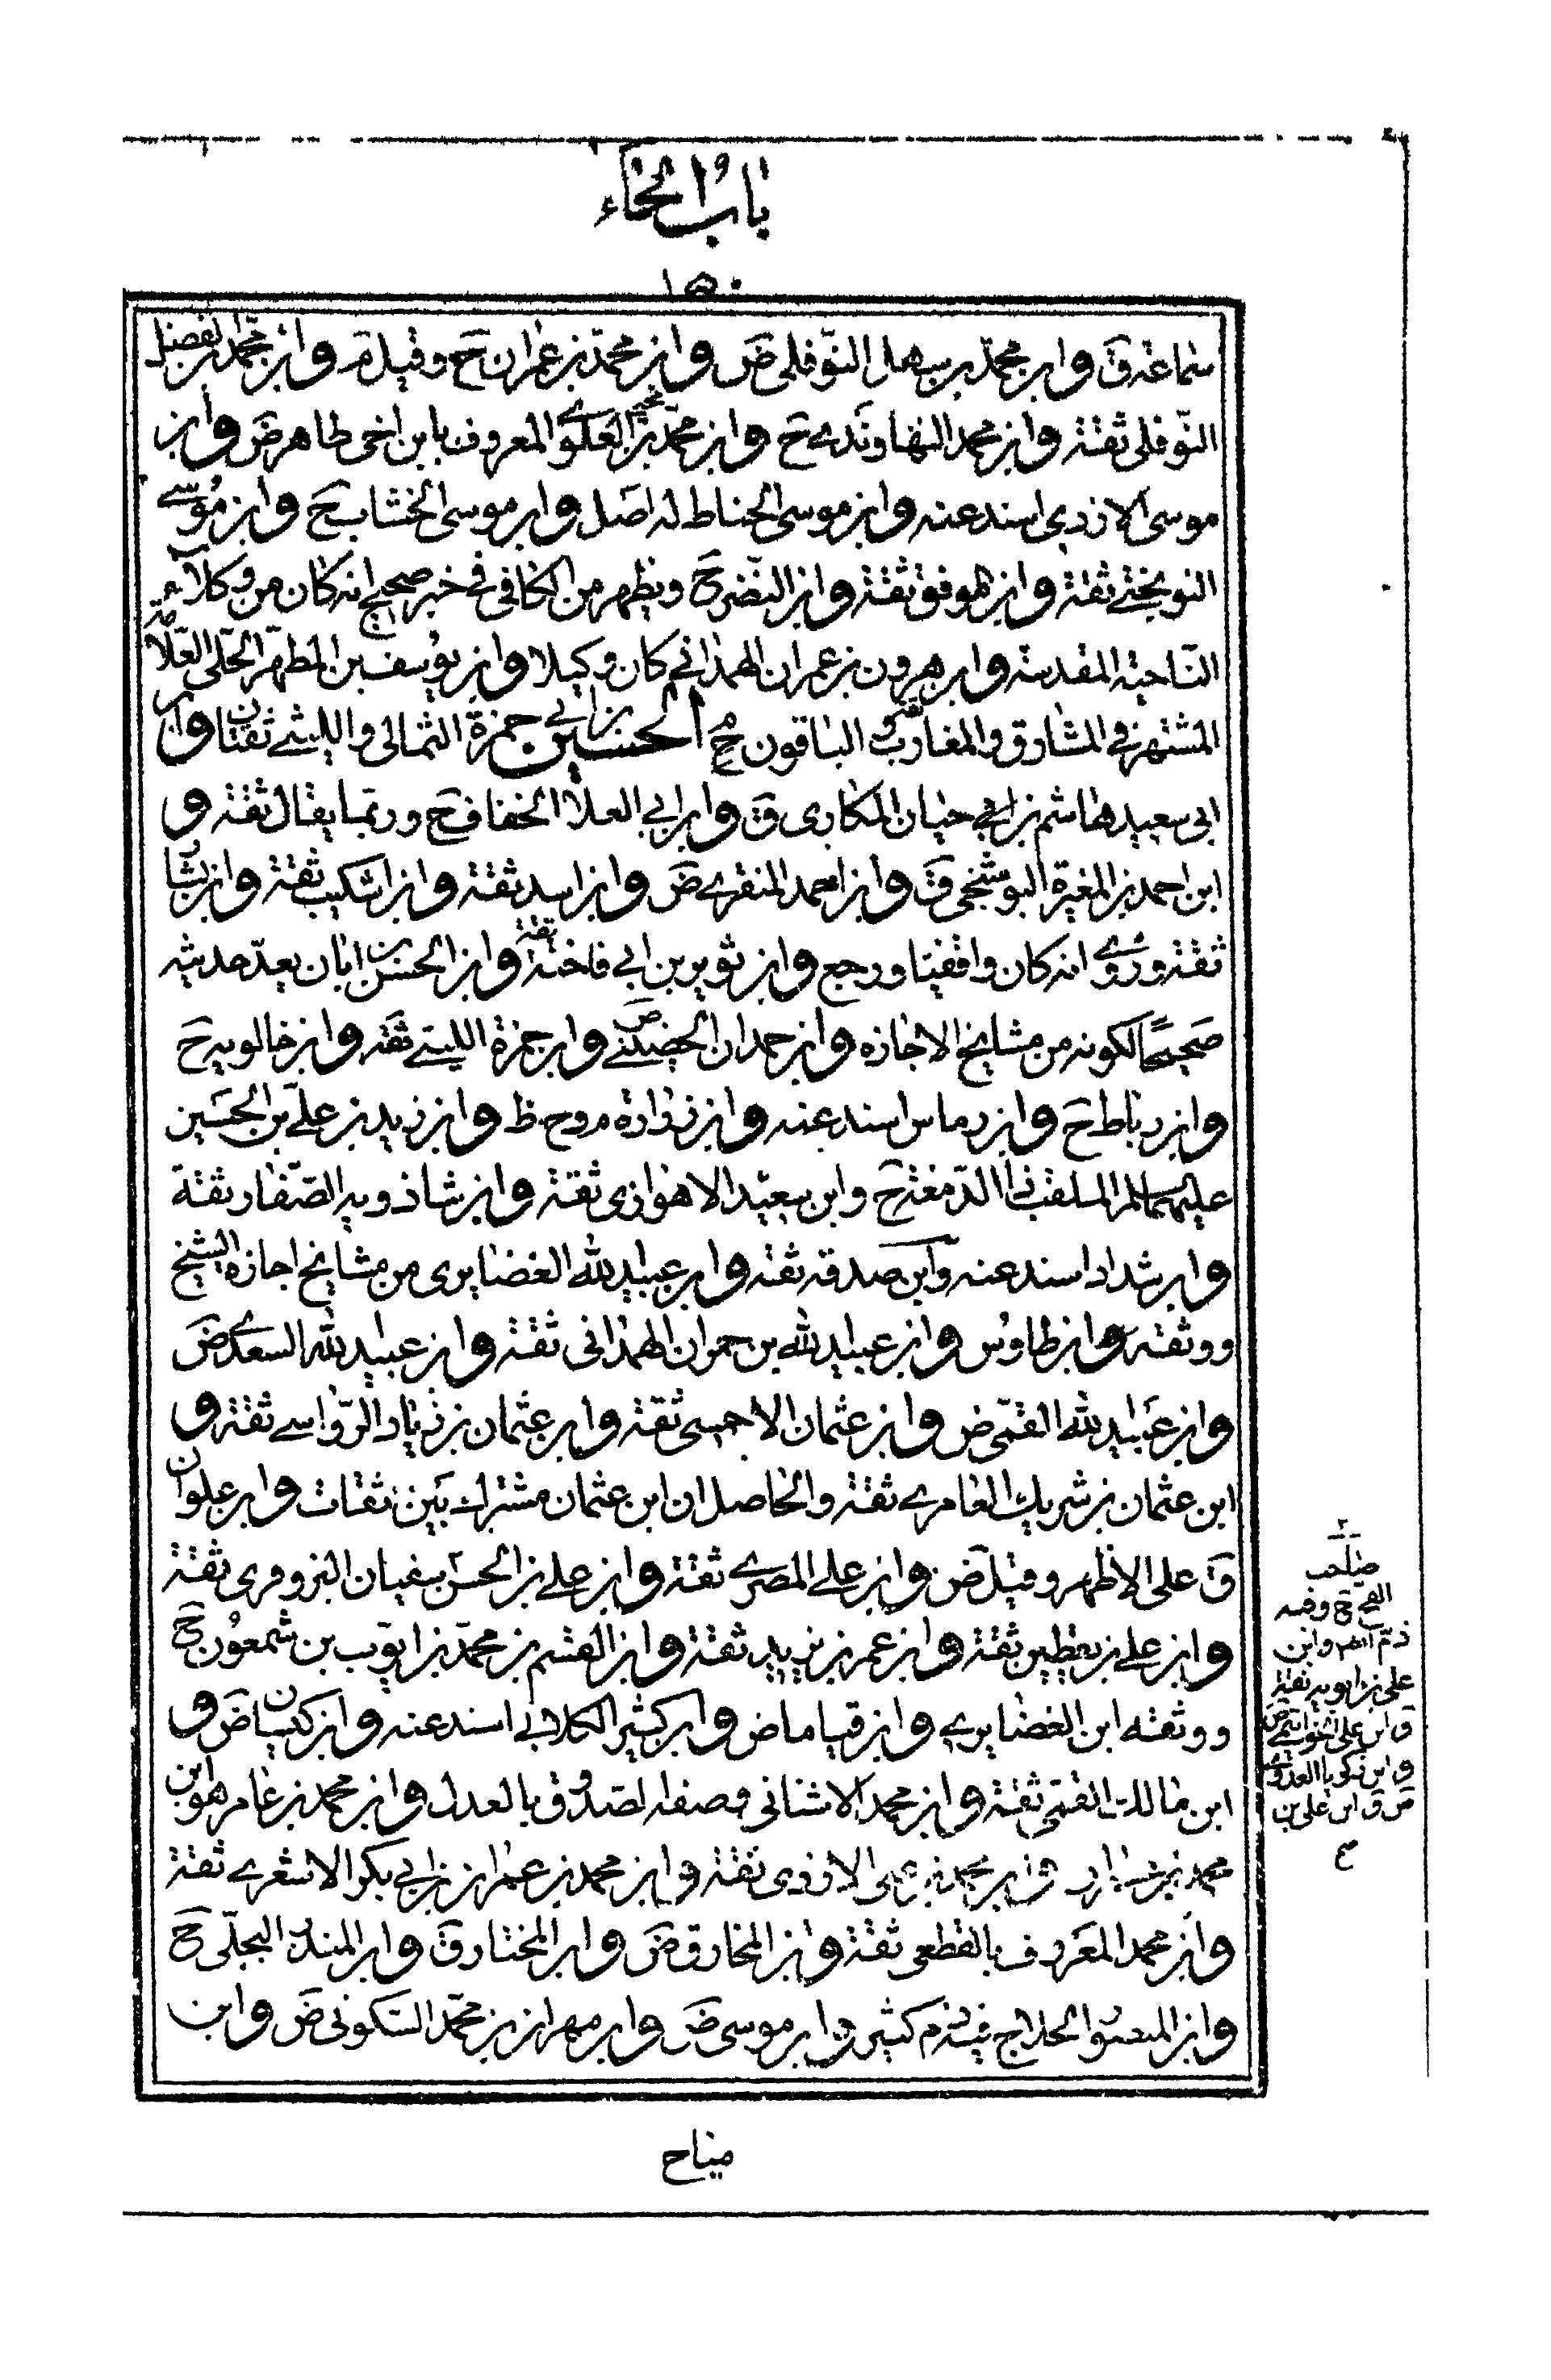 باب الحاء
١٥٠
سماعة ق وابن محمد بن سهل النوفلي ض وابن محمد بن عمران ح وقيل م وابن محمد بن الفضل
النوفلي ثقة وابن محمد النهاوندي ح وابن محمد بن يحيى العلوي المعروف بابن اخي طاهر ض وابن
موسى الازدي اسند عنه وابن موسى الحناط له اصل وابن موسى الخشاب ح وابن موسى
النوبختي ثقة وابن موفق ثقة وابن النضر ح ويظهر من الكافي في خبر صحيح انه كان من وكلاء
الناحية المقدسة وابن هرون بن عمران الهمذاني كان وكيلا وابن يوسف بن المطهر الحلي العلامة
المشتهر في المشارق والمغارب ثقة الباقون م ح الحسين بن ابي حمزة الثمالي والليثي ثقتان وابن
ابي سعيد هاشم بن ابي حيان المكاري ق وابن ابي العلاء الخفاف ح وربما يقال ثقة و
ابن احمد بن المغيرة البوشنجي ق وابن احمد المنقري ض وابن اسد ثقة وابن اشكيب ثقة وابن بشار
ثقة وروي انه كان واقفيا ورجع وابن ثوير بن ابي فاختة ثقة وابن الحسن بن ابان يعد حديثه
صحيحا لكونه من مشايخ الاجازه وابن حمدان الحضيني ض وابن حمزة الليثي ثقه وابن خالويه ح
وابن رباط ح وابن رماس اسند عنه وابن زرارة مروح ظ وابن زيد بن علي بن الحسين
عليهما السلم الملقب بذا الدمعة ح وابن سعيد الاهوازي ثقة وابن شاذويه الصفار ثقة
وابن شداد اسند عنه وابن صدقه ثقه وابن عبيد الله الغضايري من مشايخ اجازه الشيخ
ووثقه وابن طاوس وابن عبيد الله بن حمران الهمذاني ثقة وابن عبيد الله السعدي ض
وابن عبيد الله القمي ض وابن عثمان الاحمسي ثقة وابن عثمان بن زياد الرواسي ثقة و
ابن عثمان بن شريك العامري ثقة والحاصل ان ابن عثمان مشترك بين ثقات وابن علوان
ق على الاظهر وقيل ض وابن علي المصري ثقة وابن علي بن الحسن بن سفيان البزوفري ثقة
وابن علي بن يقطين ثقة وابن عمر بن يزيد ثقة وابن القسم بن محمد بن ايوب بن شمعون ح
ووثقه ابن الغضايري وابن قياما ض وابن كثير الكلابي اسند عنه وابن كيسان ض و
ابن مالك القمي ثقة وابن محمد الاشناني وصفه الصدوق بالعدل وابن محمد بن عامر هو ابن
محمد بن عمران وابن محمد بن علي الازدي ثقة وابن محمد بن عمران بن ابي بكر الاشعري ثقة
وابن محمد المعروف بالقطعي ثقة وابن المخارق ض وابن المختار ق وابن المنذر البجلي ح
وابن المنصور الحلاج فيه ذم كثير وابن موسى ض وابن مهران بن محمد السكوني ض وابن
صاحب
الفخ ح وفيه
ذم ايضا وابن
علي بن بابويه ثقة
وابن زكريا العدوي
ض ق ابن علي بن
مياح